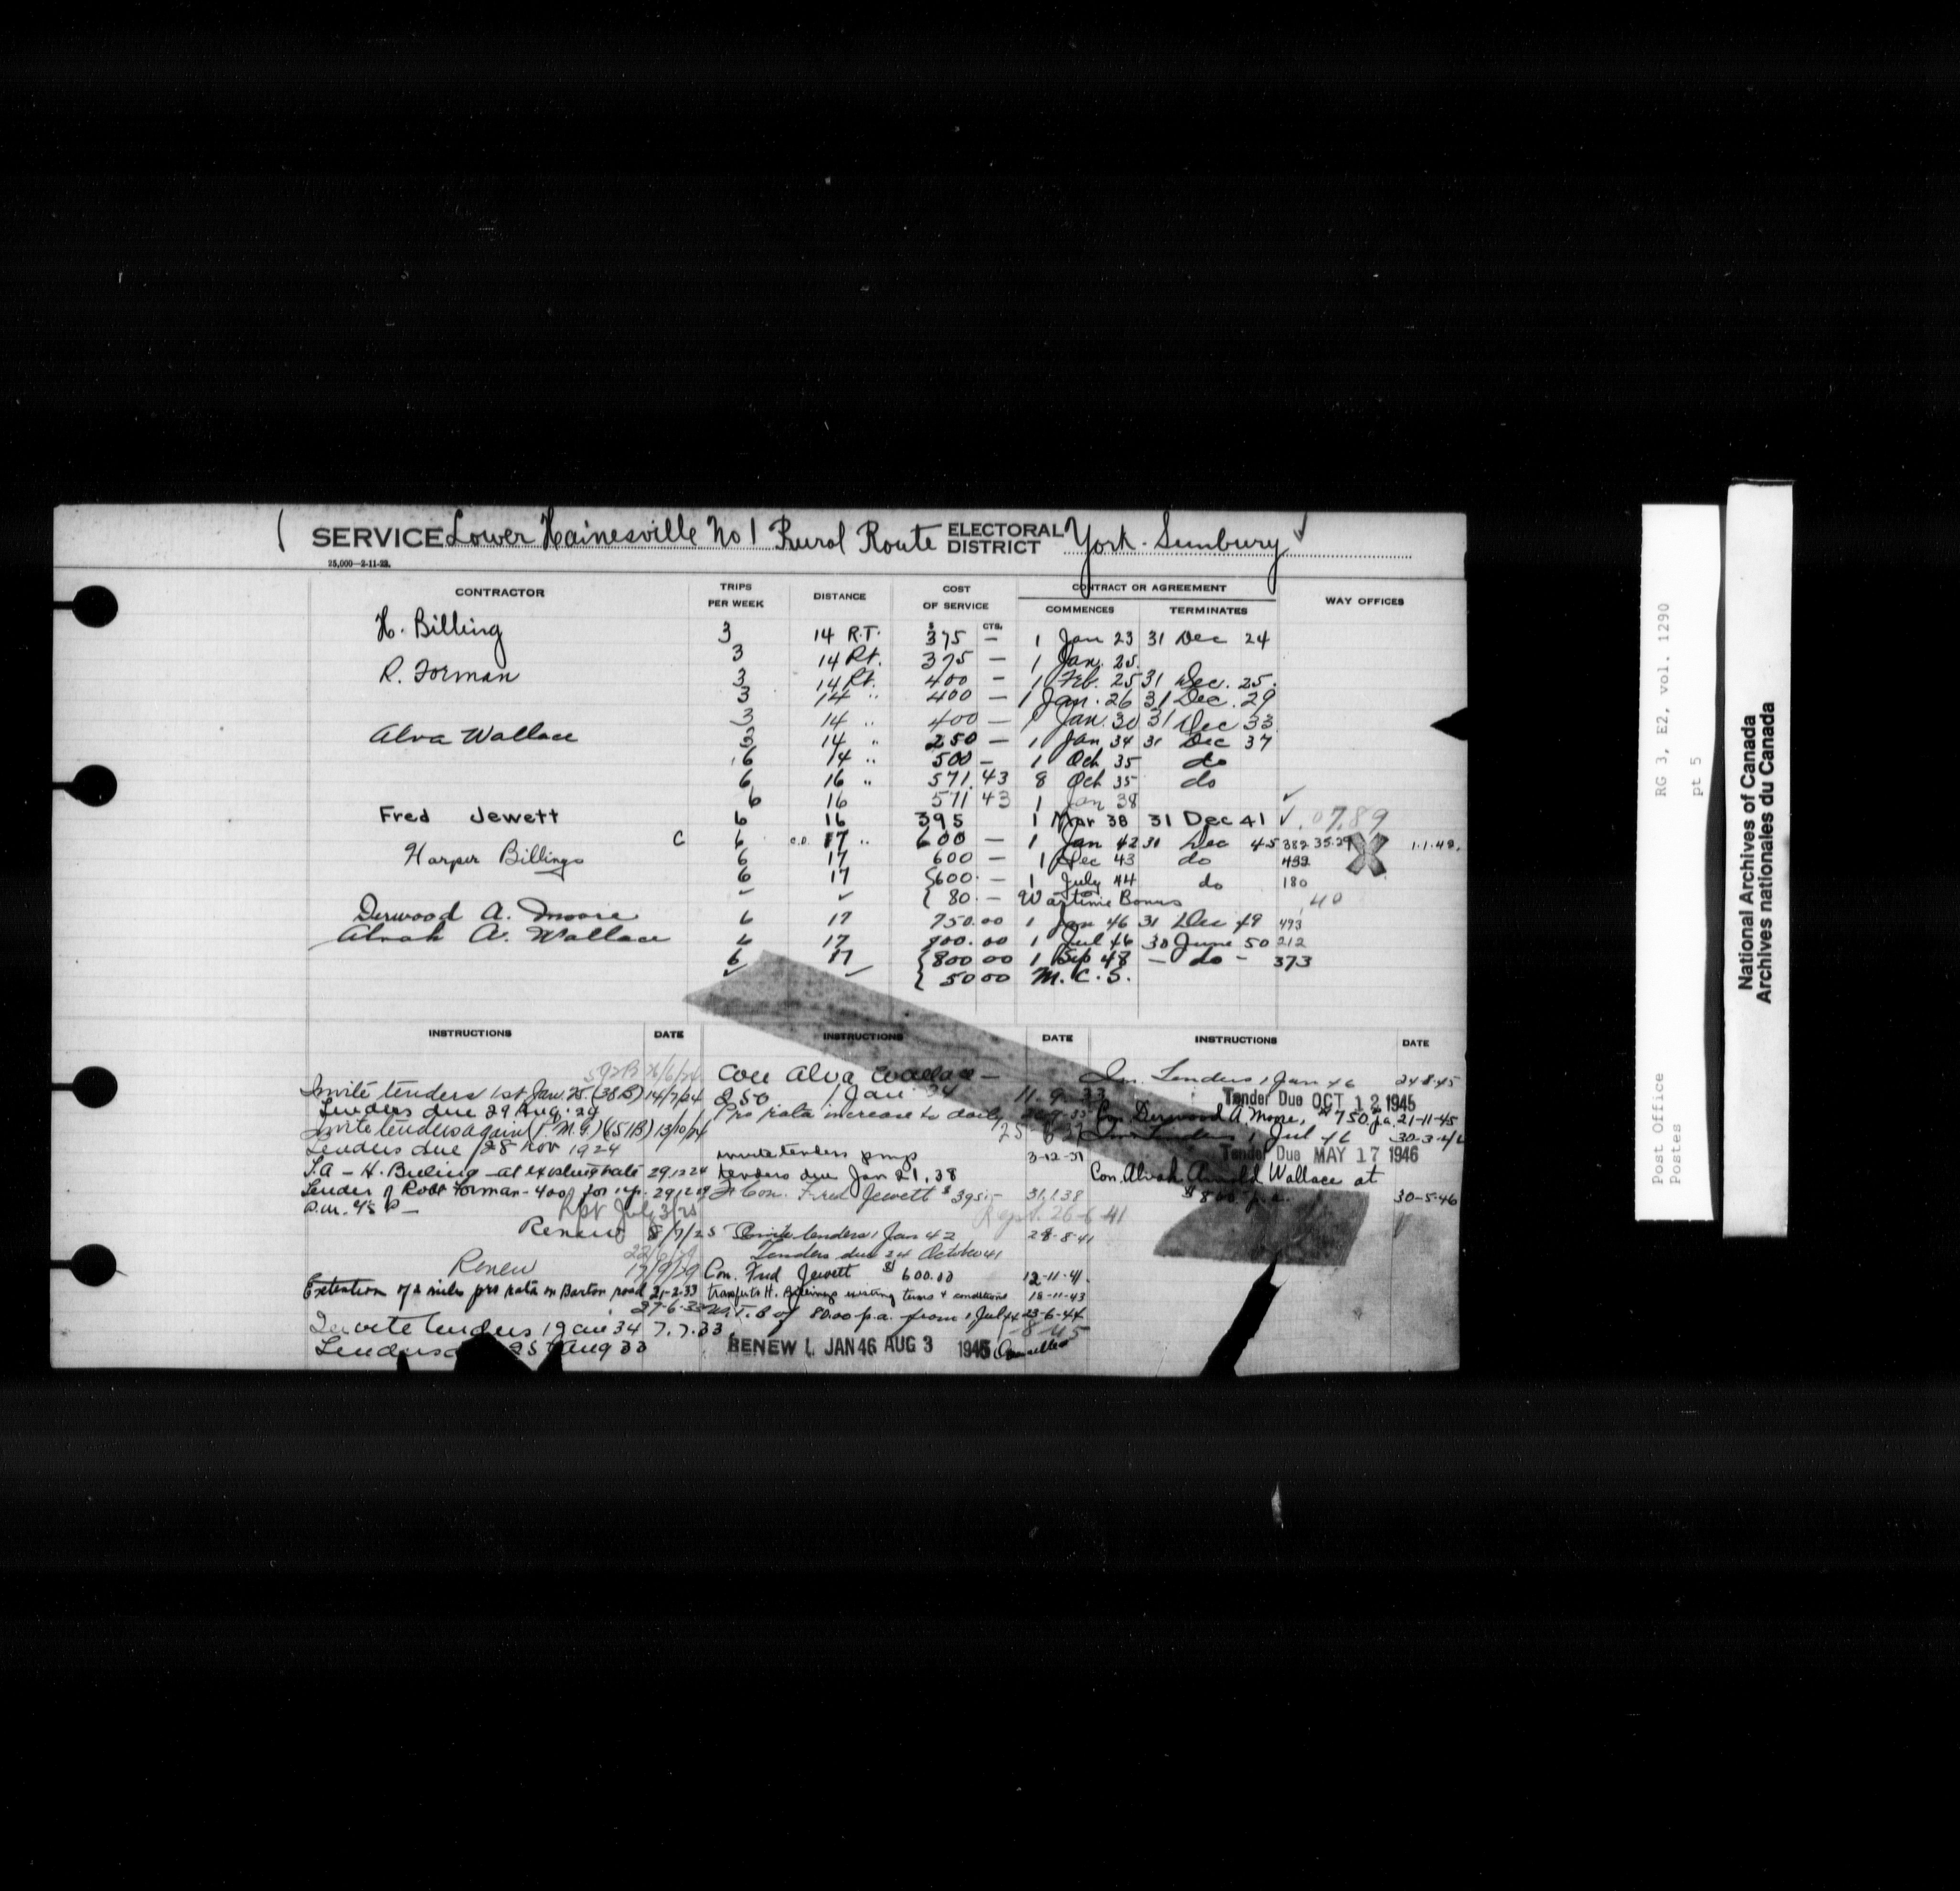 SERVICE Lower Hainesville No 1 Rural Route ELECTORAL DISTRICT York-Sunbury
25,000-2-11-22.
CONTRACTOR TRIPS PER WEEK DISTANCE COST OF SERVICE CONTRACT OR AGREEMENT WAY OFFICES
$ CTS. COMMENCES TERMINATES
H. Billing 3 14 R.T. 375 — 1 Jan 23 31 Dec 24
3 14 Rt. 375 — 1 Jan. 25
R. Forman 3 14 Rt. 400 — 1 Feb. 25 31 Dec. 25.
3 14 " 400 — 1 Jan. 26 31 Dec. 29
3 14 " 400 — 1 Jan. 30 31 Dec 33
Alva Wallace 3 14 " 250 — 1 Jan 34 31 Dec 37
6 14 " 500 — 1 Oct 35 do
6 16 " 571.43 8 Oct 35 do
6 16 571 43 1 Jan 38 ✓
Fred Jewett 6 16 395 1 Mar 38 31 Dec 41 ✓
C 6 17 " 600 — 1 Jan 42 31 Dec 45 1.1.42.
Harper Billings 6 17 600 — 1 Dec 43 do
6 17 {600. — 1 July 44 do 180
✓ ✓ { 80. — Wartime Bonus 40
Derwood A. Moore 6 17 750.00 1 Jan 46 31 Dec 49 493
Alvah A. Wallace 6 17 800.00 1 Jul 46 30 June 50 212
6 17 {800 00 1 Sep 48 — do — 373
✓ ✓ { 50 00 M.C.S.
INSTRUCTIONS DATE INSTRUCTIONS DATE INSTRUCTIONS DATE
Invite tenders 1st Jan. 25. (38B) 14/7/24
Tenders due 29 Aug. 24
Invite tenders again (P.M.G) (651B) 13/10/24
Tenders due 28 Nov 1924
T.A - H. Billing - at existing rate 29.12.24
Tender of Robt Forman - 400
Rpt July 3/25
Renew 8/7/25
Renew 17/9/29
Extention of 2 miles pro rata on Barton road 21-2-33
27-6-33
Invite tenders 1 Jan 34 7.7.33.
25 Aug 33
Con Alva Wallace —
250 1 Jan 34 11-9-33
Pro rata increase to daily
invite tenders 3-12-37
tenders due Jan 21, 38
Con. Fred Jewett $395 31.1.38
Rept. 26-6-41
Invite tenders 1 Jan 42 28-8-41
Tenders due 24 October 41
Con. Fred Jewett $600.00 12-11-41.
transfer to H. Billings existing terms & conditions 18-11-43
W.T.B of 80.00 p.a. from 1 Jul 44 23-6-44
RENEW 1 JAN 46 AUG 3 1945 Cancelled
In. Tenders 1 Jan 46 24-8-45
Tender Due OCT 12 1945
Con. Derwood A. Moore, $750 p.a. 21-11-45
Inv. Tenders 1 Jul 46 30-3-46
Tender Due MAY 17 1946
Con. Alvah Arnold Wallace at
$800 p.a. 30-5-46
Post Office RG 3, E2, vol. 1290
Postes pt 5
National Archives of Canada
Archives nationales du Canada